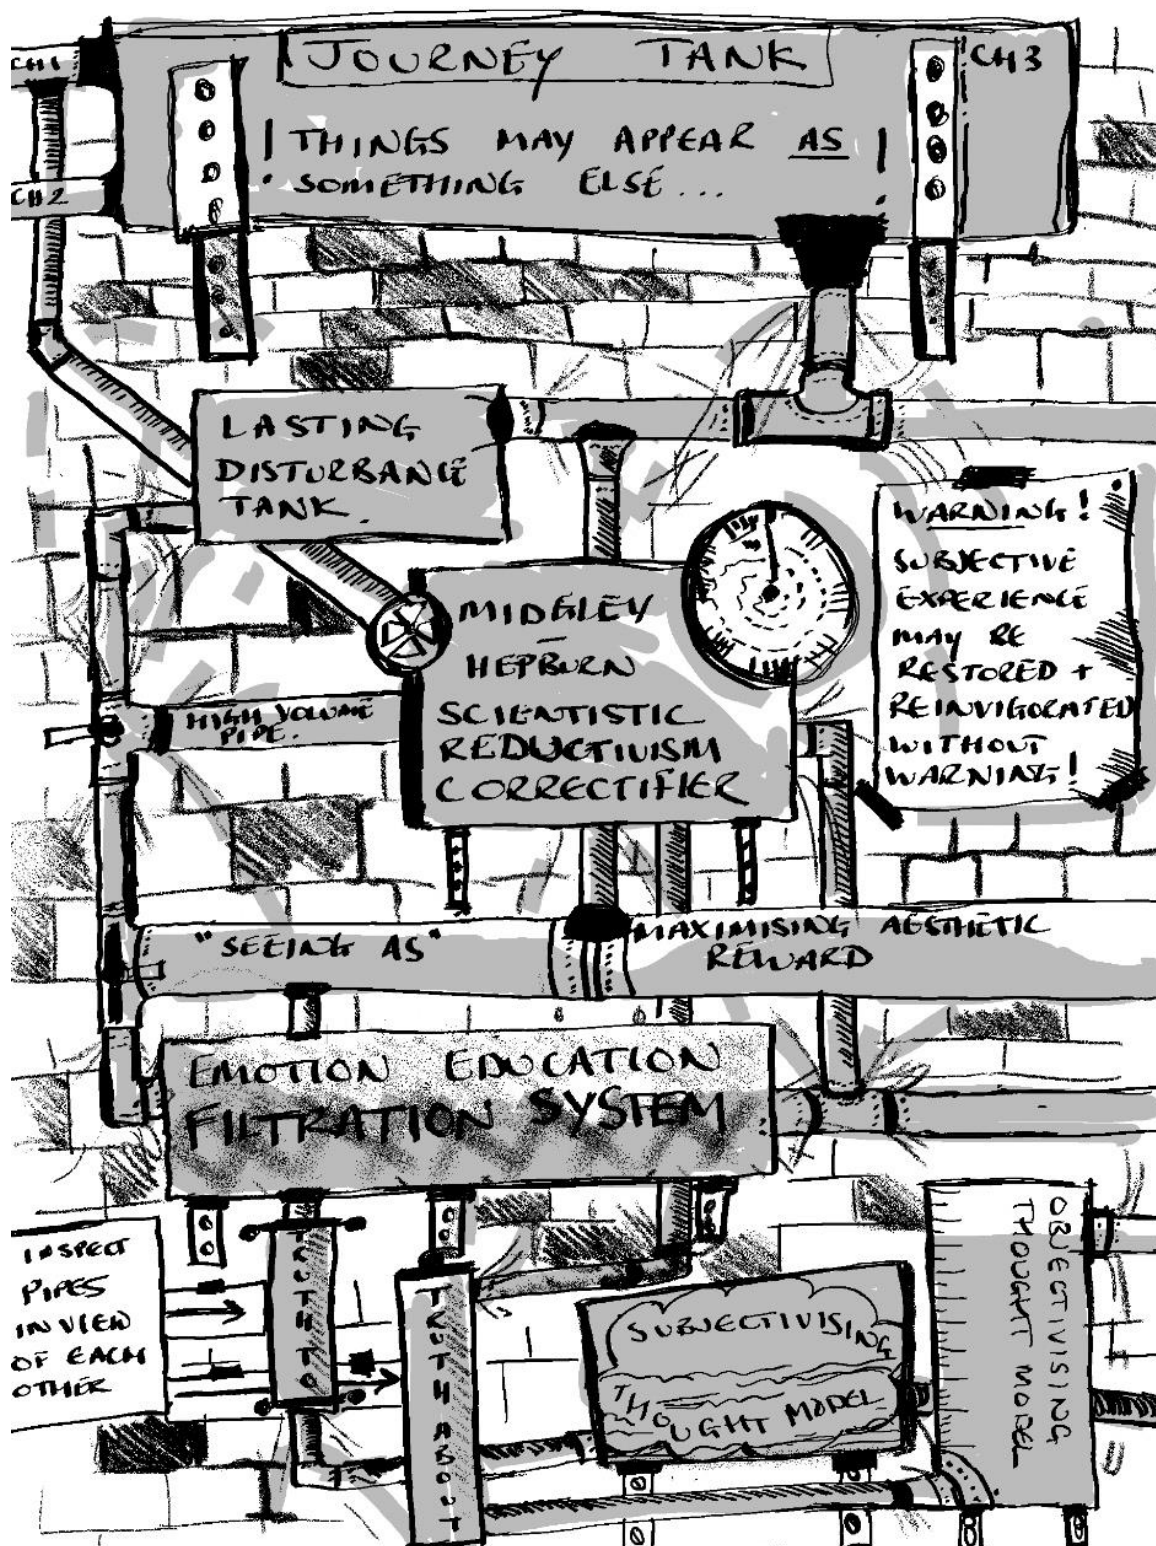 CH1
JOURNEY TANK
CH3
! THINGS MAY APPEAR AS !
SOMETHING ELSE...
CH2
LASTING
DISTURBANCE
TANK.
WARNING!
SUBJECTIVE
EXPERIENCE
MAY BE
RESTORED +
REINVIGORATED
WITHOUT
WARNING!
MIDGLEY
–
HEPBURN
SCIENTISTIC
REDUCTIVISM
CORRECTIFIER
HIGH VOLUME
PIPE.
"SEEING AS"
MAXIMISING AESTHETIC
REWARD
EMOTION EDUCATION
FILTRATION SYSTEM
INSPECT
PIPES
IN VIEW
OF EACH
OTHER
TRUTH TO
TRUTH ABOUT
SUBJECTIVISING
THOUGHT MODEL
OBJECTIVISING
THOUGHT MODEL